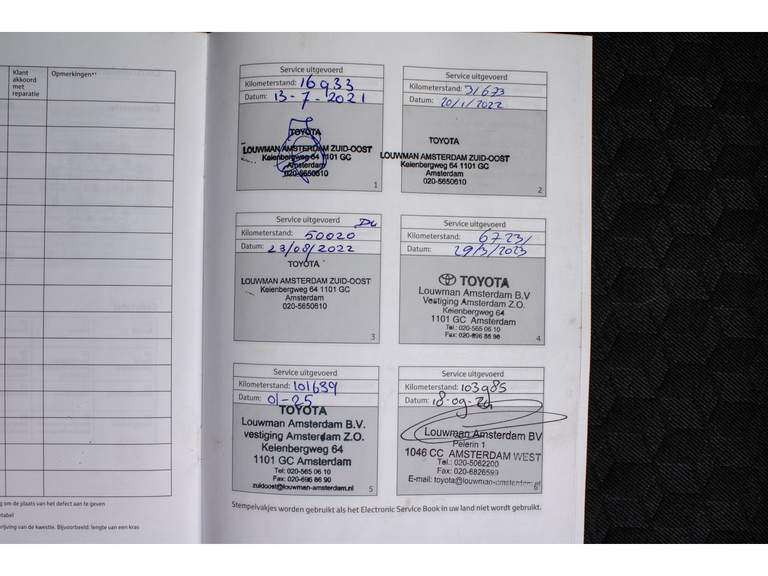 Klant
akkoord
met
reparatie
Opmerkingen*¹
g om de plaats van het defect aan te geven
tabel
rijving van de kwestie. Bijvoorbeeld: lengte van een kras
Service uitgevoerd
Kilometerstand: 16933
Datum: 13-7-2021
TOYOTA
LOUWMAN AMSTERDAM ZUID-OOST
Keienbergweg 64 1101 GC
Amsterdam
020-5650610
1
Service uitgevoerd
Kilometerstand: 31673
Datum: 20/1/2022
TOYOTA
LOUWMAN AMSTERDAM ZUID-OOST
Keienbergweg 64 1101 GC
Amsterdam
020-5650610
2
Service uitgevoerd
Kilometerstand: 50020
Datum: 23/08/2022
TOYOTA
LOUWMAN AMSTERDAM ZUID-OOST
Keienbergweg 64 1101 GC
Amsterdam
020-5650610
3
Service uitgevoerd
Kilometerstand: 67231
Datum: 29/3/2023
TOYOTA
Louwman Amsterdam B.V
Vestiging Amsterdam Z.O.
Keienbergweg 64
1101 GC Amsterdam
Tel.: 020-565 06 10
Fax: 020-696 86 90
4
Service uitgevoerd
Kilometerstand: 101639
Datum: 01-25
TOYOTA
Louwman Amsterdam B.V.
vestiging Amsterdam Z.O.
Keienbergweg 64
1101 GC Amsterdam
Tel: 020-565 06 10
Fax: 020-696 86 90
zuidoost@louwman-amsterdam.nl
5
Service uitgevoerd
Kilometerstand: 103985
Datum: 18-09-
Louwman Amsterdam BV
Pelerin 1
1046 CC AMSTERDAM WEST
Tel.: 020-5062200
Fax: 020-6826599
E-mail: toyota@louwman-amsterdam.nl
6
Stempelvakjes worden gebruikt als het Electronic Service Book in uw land niet wordt gebruikt.